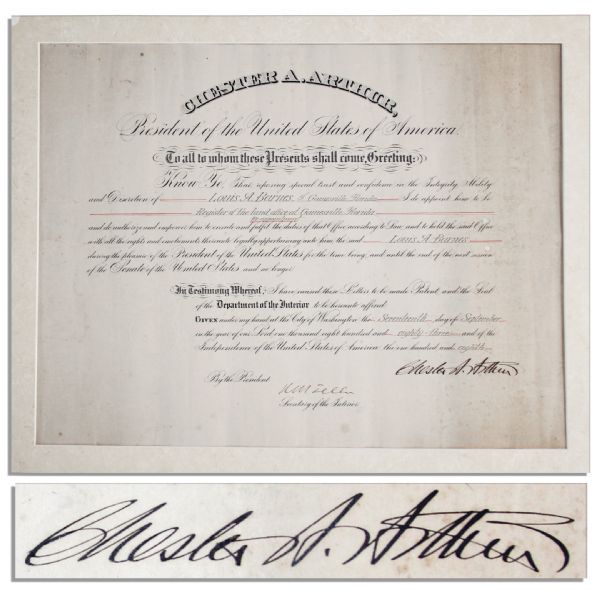 CHESTER A. ARTHUR,
President of the United States of America.
To all to whom these Presents shall come, Greeting:
Know Ye, That reposing special trust and confidence in the Integrity, Ability
and Discretion of Louis A. Barnes, of Gainesville Florida I do appoint him to be
Register of the land office at Gainesville Florida
by appointment
and do authorize and empower him to execute and fulfil the duties of that Office according to Law and to hold the said Office
with all the rights and emoluments thereunto legally appertaining unto him the said Louis A. Barnes
during the pleasure of the President of the United States for the time being, and until the end of the next session
of the Senate of the United States and no longer
In Testimony Whereof, I have caused these Letters to be made Patent, and the Seal
of the Department of the Interior to be hereunto affixed.
GIVEN under my hand at the City of Washington the Seventeenth day of September
in the year of our Lord one thousand eight hundred and eighty-three and of the
Independence of the United States of America the one hundred and eighth
Chester A. Arthur
By the President
H M Teller
Secretary of the Interior
Chester A. Arthur